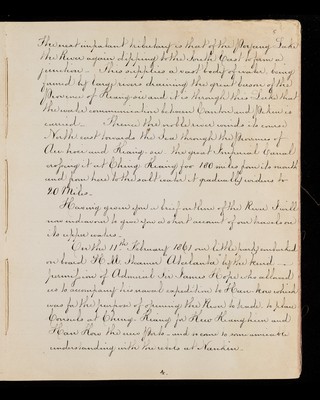 The next important tributary is that of the Poyang Lake
the River again dipping to the South East to form a
junction. This supplies a vast body of water being
joined by large rivers draining the great bason of the
Province of Kiang-si and it is through this Lake that
the water communication between Canton and Pekin is
carried. Hence the noble river winds its course
North east towards the Sea through the Provinces of
An-hwui and Kiang-su the great Imperial Canal
crossing it at Ching Kiang for 100 miles from its mouth
and from here to the salt water it gradually widens to
20 Miles.
Having given you a brief outline of the River I will
now endeavour to give you a short account of our travels on
its upper waters.
On the 11th February 1861 our little party embarked
on board H.M. Steamer "Atalanta" by the kind
permission of Admiral Sir James Hope who allowed
us to accompany his naval expedition to Han-kow which
was for the purpose of opening the River to trade to place
Consuls at Ching-Kiang foo Kew Kiang heen and
Han Kow the new Ports and to come to some amicable
understanding with the rebels at Nankin.
4.